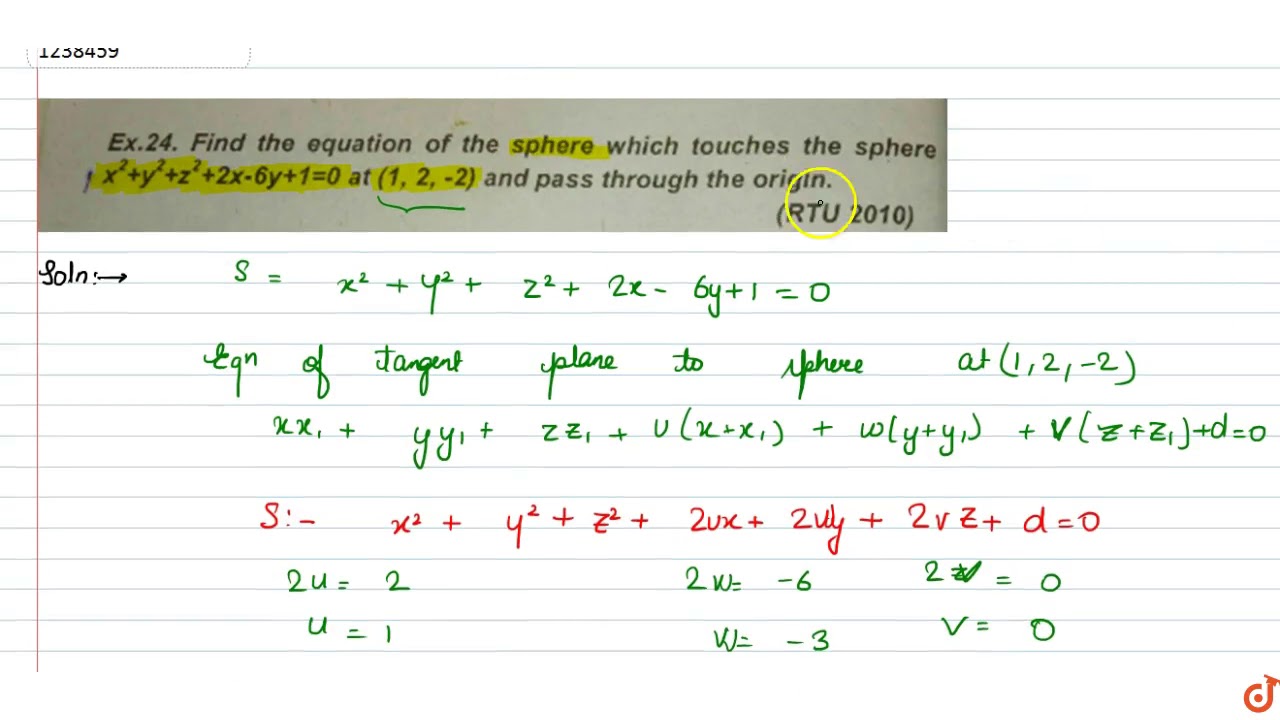 1238459
Ex.24. Find the equation of the sphere which touches the sphere
x²+y²+z²+2x-6y+1=0 at (1, 2, -2) and pass through the origin.
(RTU 2010)
Soln:→ S = x² + y² + z² + 2x - 6y + 1 = 0
Eqn of tangent plane to sphere at (1, 2, -2)
xx₁ + yy₁ + zz₁ + u(x+x₁) + w(y+y₁) + v(z+z₁)+d=0
S:- x² + y² + z² + 2ux + 2wy + 2vz + d = 0
2u = 2 2w= -6 2v = 0
u = 1 w= -3 v = 0